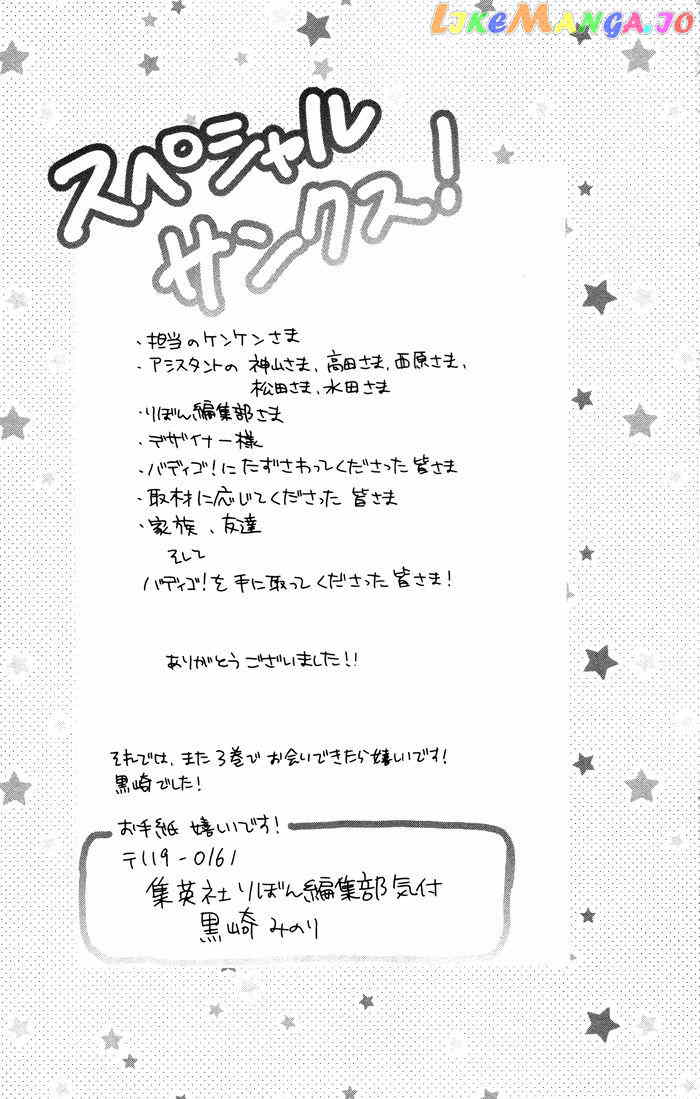 LIKEMANGA.IO
スペシャル
サンクス!
・担当のケンケンさま
・アシスタントの 神山さま、高田さま、西原さま、
松田さま、水田さま
・りぼん編集部さま
・デザイナー様
・バディゴ!にたずさわってくださった 皆さま
・取材に応じてくださった 皆さま
・家族、友達
そして
バディゴ!を手に取ってくださった皆さま!
ありがとうございました!!
それでは、また3巻でお会いできたら嬉しいです!
黒崎でした!
お手紙 嬉しいです!
〒119-0161
集英社りぼん編集部気付
黒崎みのり